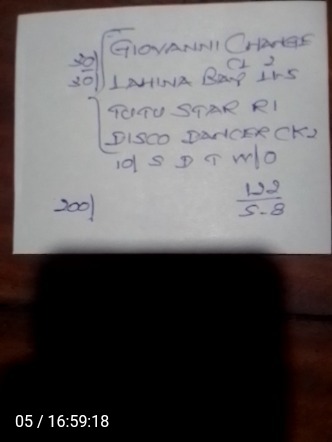 30/ GIOVANNI CHANGE
C1 2
30/ LAHINA BAY 1 hS
TUTU STAR R1
DISCO DANCER CK2
10/ S D T W/O
200/
122
5-8
05 / 16:59:18